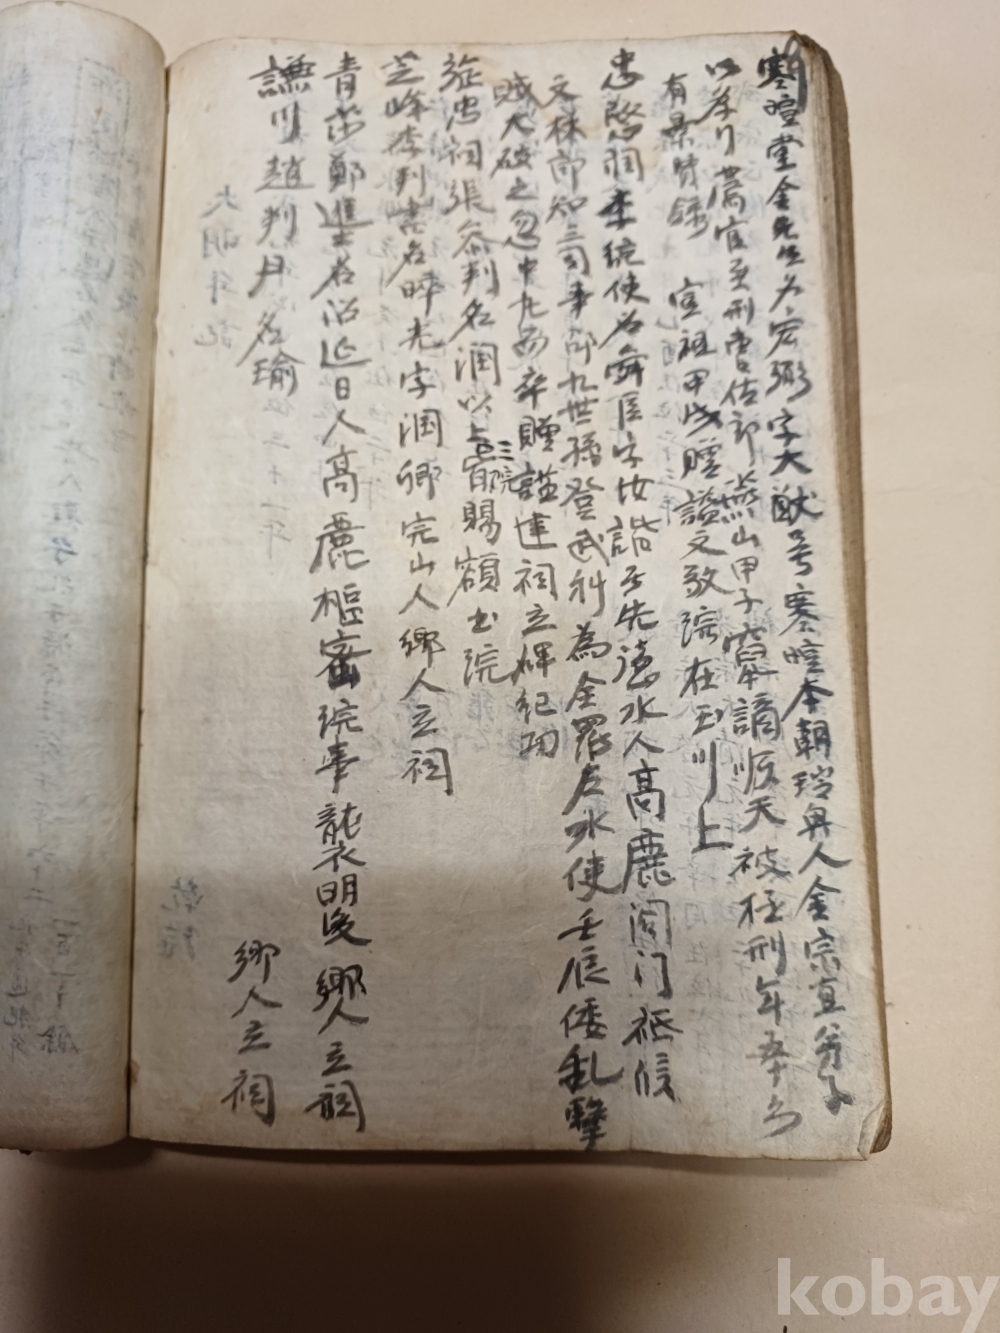 寒暄堂金先生名宏弼字大猷号寒暄本朝瑞興人金宗直弟子
以孝行薦官至刑曹佐郎燕山甲子竄謫順天被極刑年五十
有景賢錄 宣祖甲戌贈諡文敬院在玉川上
忠愍祠李統使名舜臣字汝諧系先德水人高麗閤门祗候
文林郎知三司事邵九世孫登武科為全羅左水使壬辰倭亂擊
賊大破之忽中丸而卒贈諡建祠立碑纪功
旌忠祠張叅判名潤以上三院宣賜額书院
芝峰李判書名晬光字潤卿完山人鄉人立祠
青莎鄭進士名沼延日人高麗樞密院事襲明後 鄉人立祠
謙川趙判尹名瑜 鄉人立祠
大明年記
kobay